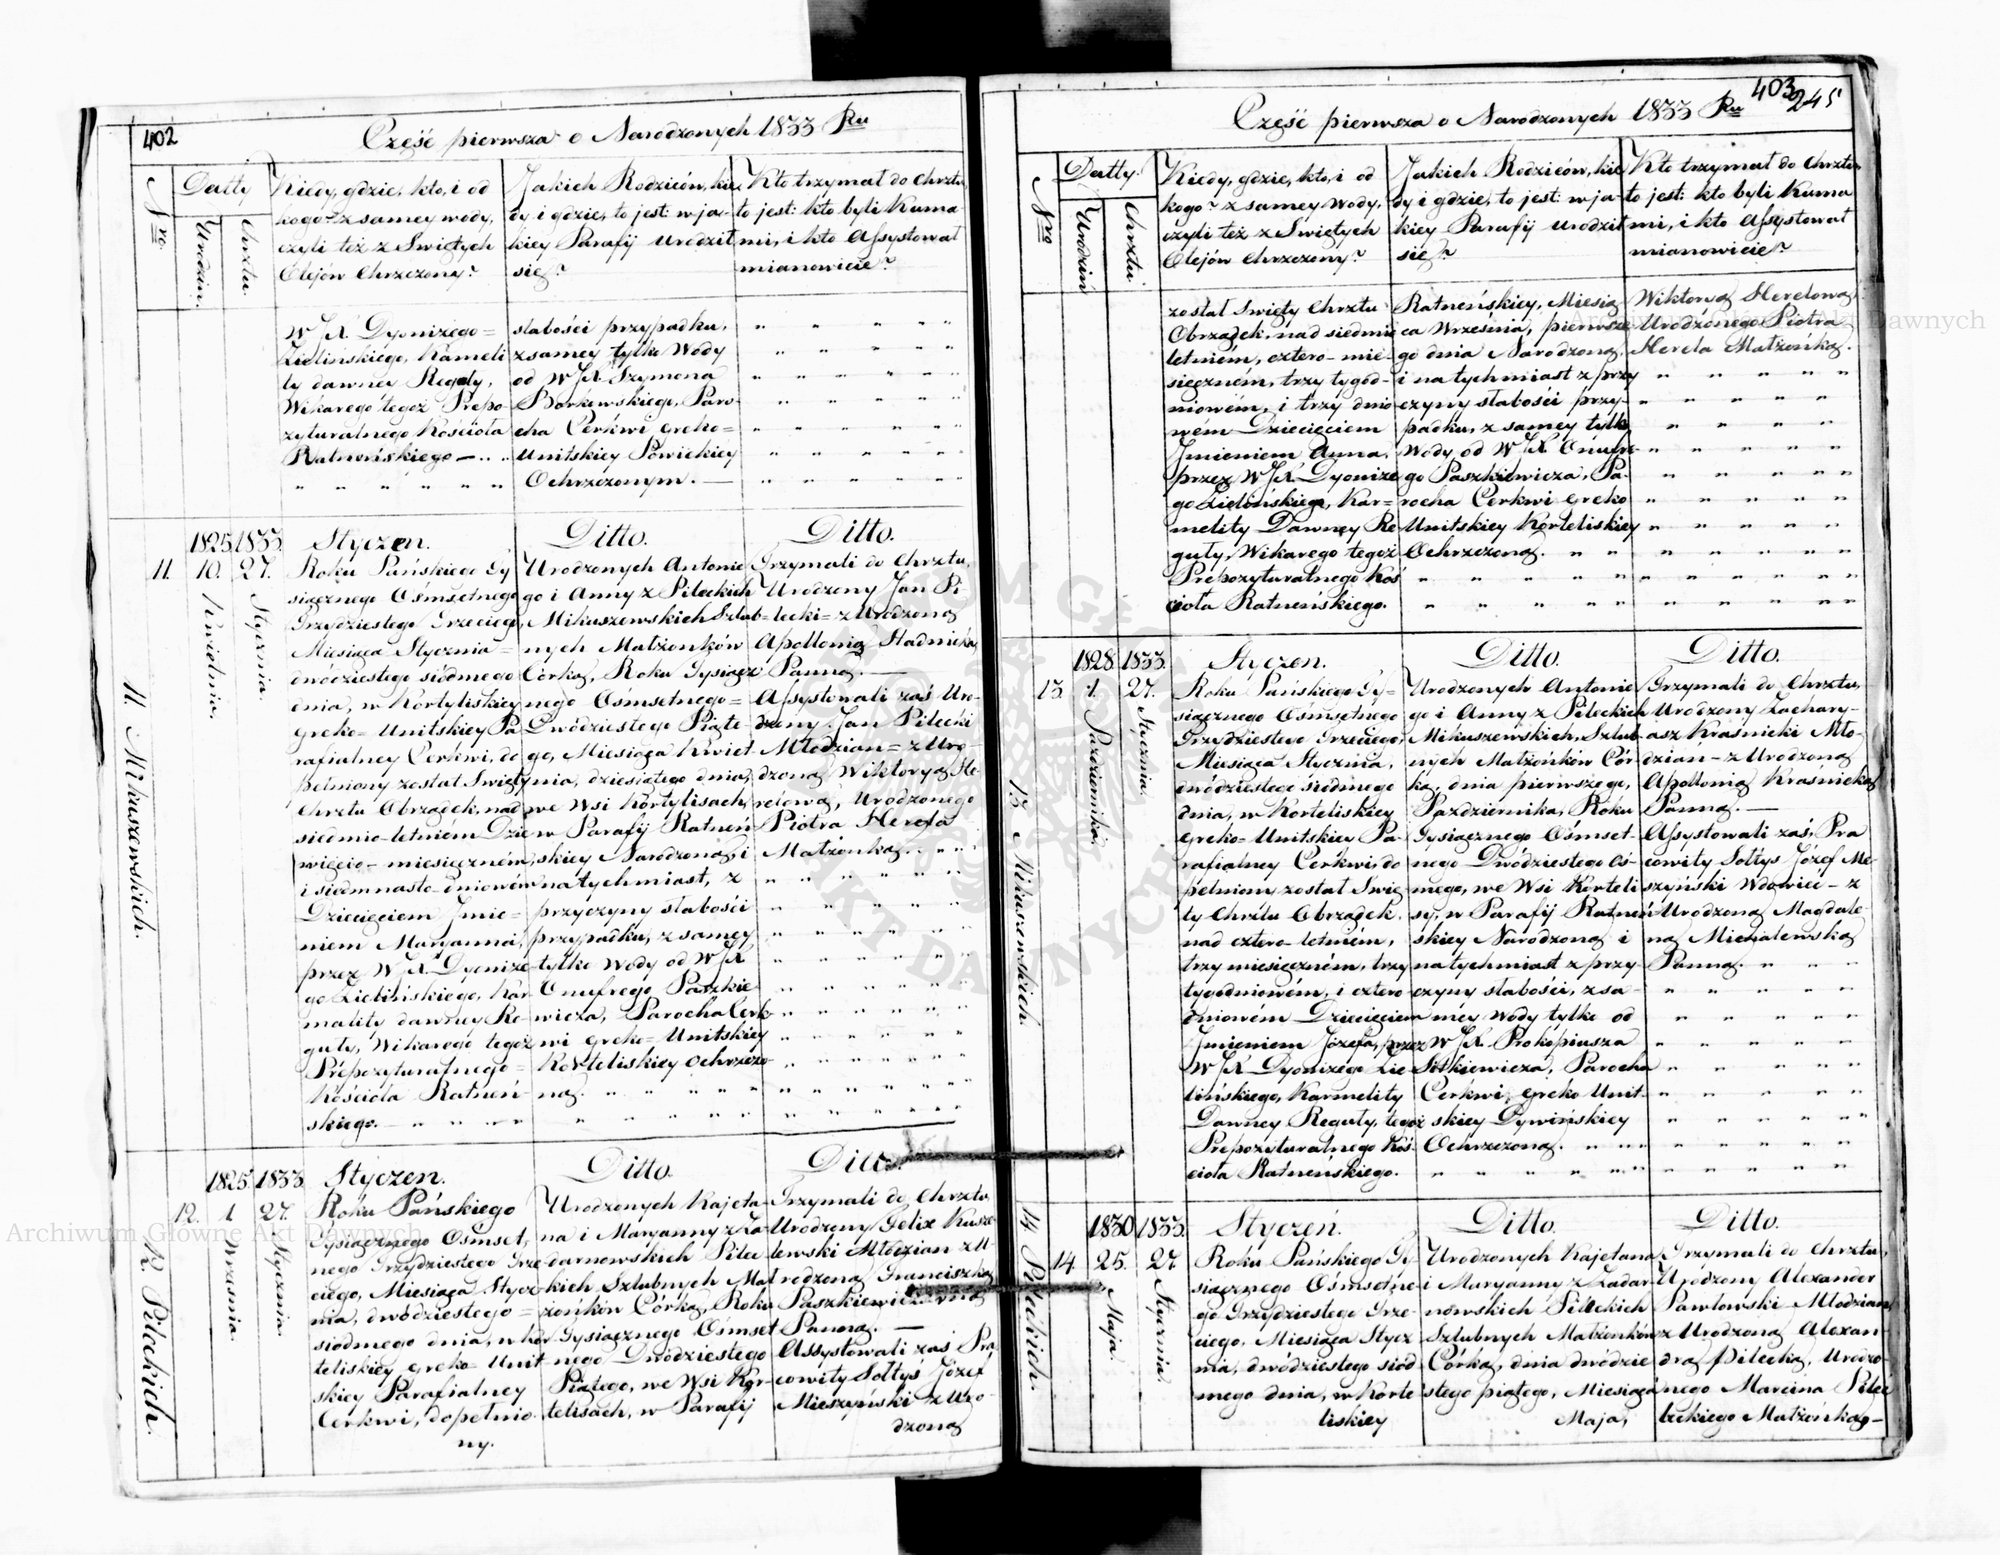 402
Część pierwsza o Narodzonych 1833 Ru
Nro.
Datty
Urodzin.
Chrztu.
Kiedy, gdzie, kto, i od
kogo? z samey wody,
czyli też z Swiętych
Olejów Chrzczony?
Jakich Rodziców, kie-
dy i gdzie, to jest: w ja-
kiey Parafij urodził
się?
Kto trzymał do Chrztu,
to jest: kto byli Kuma-
mi, i kto Assystował
mianowicie?
W JX Dyonizego=
Zielinskiego, Kameli
ty dawney Reguły,
Wikarego tegoż Prepo-
zyturalnego Kościoła
Ratneńskiego
słabości przypadku,
z samey tylko Wody
od W JX Szymona
Borkowskiego, Paro-
cha Cerkwi Greko=
Unitskiey Powickiey
Ochrzczonym. —
11. Mikuszewskich.
11.
1825. 1833.
10. 27.
Kwietnia.
Stycznia.
Styczen.
Roku Pańskiego Ty
siącznego Ośmsetnego
Trzydziestego Trzeciego,
Miesiąca Stycznia=
dwódziestego siódmego
dnia, w Kortyliskiey
Greko=Unitskiey Pa
rafialney Cerkwi, do
pełniony został Swięty
Chrztu Obrządek, nad
siedmio-letniém Dzie
więcio-miesięczném,
i siedmnasto-dniowém
Dziecięciem Jmie=
niem Maryanna,
przez W JX Dyonize
go Zielińskiego, Kar
mality dawney Re-
guły, Wikarego tegoż
Prepozyturalnego=
Kościoła Ratneń-
skiego.
Ditto.
Urodzonych Antonie
go i Anny z Pileckich
Mikuszewskich Szlub-
nych Małżonków
Córka, Roku Tysiącz
nego Ośmsetnego=
Dwódziestego Piąte-
go, Miesiąca Kwiet
nia, dziesiątego dnia,
we Wsi Kortylisach,
w Parafij Ratneń
skiey Narodzona, i
natychmiast, z
przyczyny słabości
przypadku, z samey
tylko Wody od W JX
Onufrego Paszkie
wicza, Parocha Cerk-
wi Greko=Unitskiey
Korteliskiey Ochrzczo
ną.
Ditto.
Trzymali do Chrztu,
Urodzony Jan Pi
lecki=z Urodzoną
Apollonią Stadnicką,
Panną. —
Assystowali zaś Uro-
dzony Jan Pilecki
Młodzian=z Uro-
dzoną Wiktoryą He-
relową, Urodzonego
Piotra Herela
Małżonką.
12. Pileckich.
12.
1825. 1833.
1 27.
Września.
Stycznia.
Styczen.
Roku Pańskiego
Tysiącznego Ośmset,
nego Trzydziestego Trze
ciego, Miesiąca Stycz
nia, dwódziestego=
siódmego dnia, w Kor
teliskiey Greko Unit
skiey Parafialney
Cerkwi, dopełnio-
ny.
Ditto.
Urodzonych Kajeta-
na i Maryanny z Za
darnowskich Pilec
kich Szlubnych Mał
żonków Córka, Roku
Tysiącznego Ośmset
nego Dwódziestego
Piątego, we Wsi Kor-
telisach, w Parafij
Ditto.
Trzymali do Chrztu,
Urodzony Felix Kusze-
lewski Młodzian z U
rodzoną Franciszką
Panną. —
Assystowali zaś Pra
cowity Sołtys Józef
Mieszyński z Uro
dzoną
403
245
Część pierwsza o Narodzonych 1833 Ru
Nro
Datty.
Urodzin
Chrztu.
Kiedy, gdzie, kto, i od
kogo? z samey Wody,
czyli też z Swiętych
Olejów Chrzczony?
Jakich Rodziców, kie
dy i gdzie, to jest: w ja-
kiey Parafij urodził
się?
Kto trzymał do Chrztu,
to jest: kto byli Kuma
mi, i kto Assystował
mianowicie?
został Swięty Chrztu
Obrządek, nad siedmio
letniém, cztero-mie-
sięczném, trzy tygod-
niowém, i trzy dnio
wém Dziecięciem
Jmieniem Anna,
przez W JX Dyonize
go Zielińskiego, Kar=
melity Dawney Re
guły, Wikarego tegoż
Prepozyturalnego Koś
cioła Ratneńskiego.
Ratneńskiey, Miesią
ca Września, pierwsze
go dnia Narodzona,
i natychmiast z przy
czyny słabości przy-
padku, z samey tylko
Wody od W JX Onufre-
go Paszkiewicza, Pa-
rocha Cerkwi Greko
Unitskiey Korteliskiey
Ochrzczona.
Wiktoryą Herelową,
Urodzonego Piotra
Herela Małżonką.
13. Mikuszewskich.
13.
1828. 1833.
1. 27.
Października.
Stycznia.
Styczen.
Roku Pańskiego Ty-
siącznego Ośmsetnego
Trzydziestego Trzeciego,
Miesiąca Stycznia,
dwódziestego siódmego
dnia, w Korteliskiey
Greko-Unitskiey Pa-
rafialney Cerkwi, do
pełniony został Swię
ty Chrztu Obrządek,
nad cztero-letniém,
trzy miesięczném, trzy
tygodniowém, i cztero
dniowém Dziecięciem
Jmieniem Józefa, przez
W JX Dyonizego Zie
lińskiego, Karmelity
Dawney Reguły, tegoż
Prepozyturalnego Koś-
cioła Ratneńskiego.
Ditto.
Urodzonych Antonie
go i Anny z Pileckich
Mikuszewskich, Szlub
nych Małżonków Cór
ka, dnia pierwszego,
Października, Roku
Tysiącznego Ośmset-
nego Dwódziestego Oś-
mego, we Wsi Korteli
sy, w Parafij Ratneń
skiey Narodzona i
natychmiast z przy-
czyny słabości, z sa-
mey Wody tylko od
W JX Prokopiusza
Sitkiewicza, Parocha
Cerkwi, Greko Unit-
skiey Dywińskiey
Ochrzczona.
Ditto.
Trzymali do Chrztu,
Urodzony Zachary-
asz Krasnicki Mło-
dzian-z Urodzoną
Apollonią Krasnicką
Panną. —
Assystowali zaś, Pra
cowity Sołtys Józef Me-
szyński Wdowiec-z
Urodzoną Magdale-
ną Michalewską
Panną.
14. Pileckich.
14
1830. 1833.
25. 27
Maja.
Stycznia.
Styczeń.
Roku Pańskiego Ty
siącznego Ośmsetne
go Trzydziestego Trze
ciego, Miesiąca Stycz
nia, dwódziestego siód
mego dnia, w Korte
liskiey
Ditto.
Urodzonych Kajetana
i Maryanny z Zadar
nowskich Pileckich
Szlubnych Małżonków
Córka, dnia dwódzie
stego piątego, Miesiąca
Maja,
Ditto.
Trzymali do Chrztu,
Urodzony Alexander
Pawłowski Młodzian,
z Urodzoną Alexan-
drą Pilecką, Urodzo-
nego Marcina Pilec
Małżonką-
Archiwum Główne Akt Dawnych
Archiwum Główne Akt Dawnych